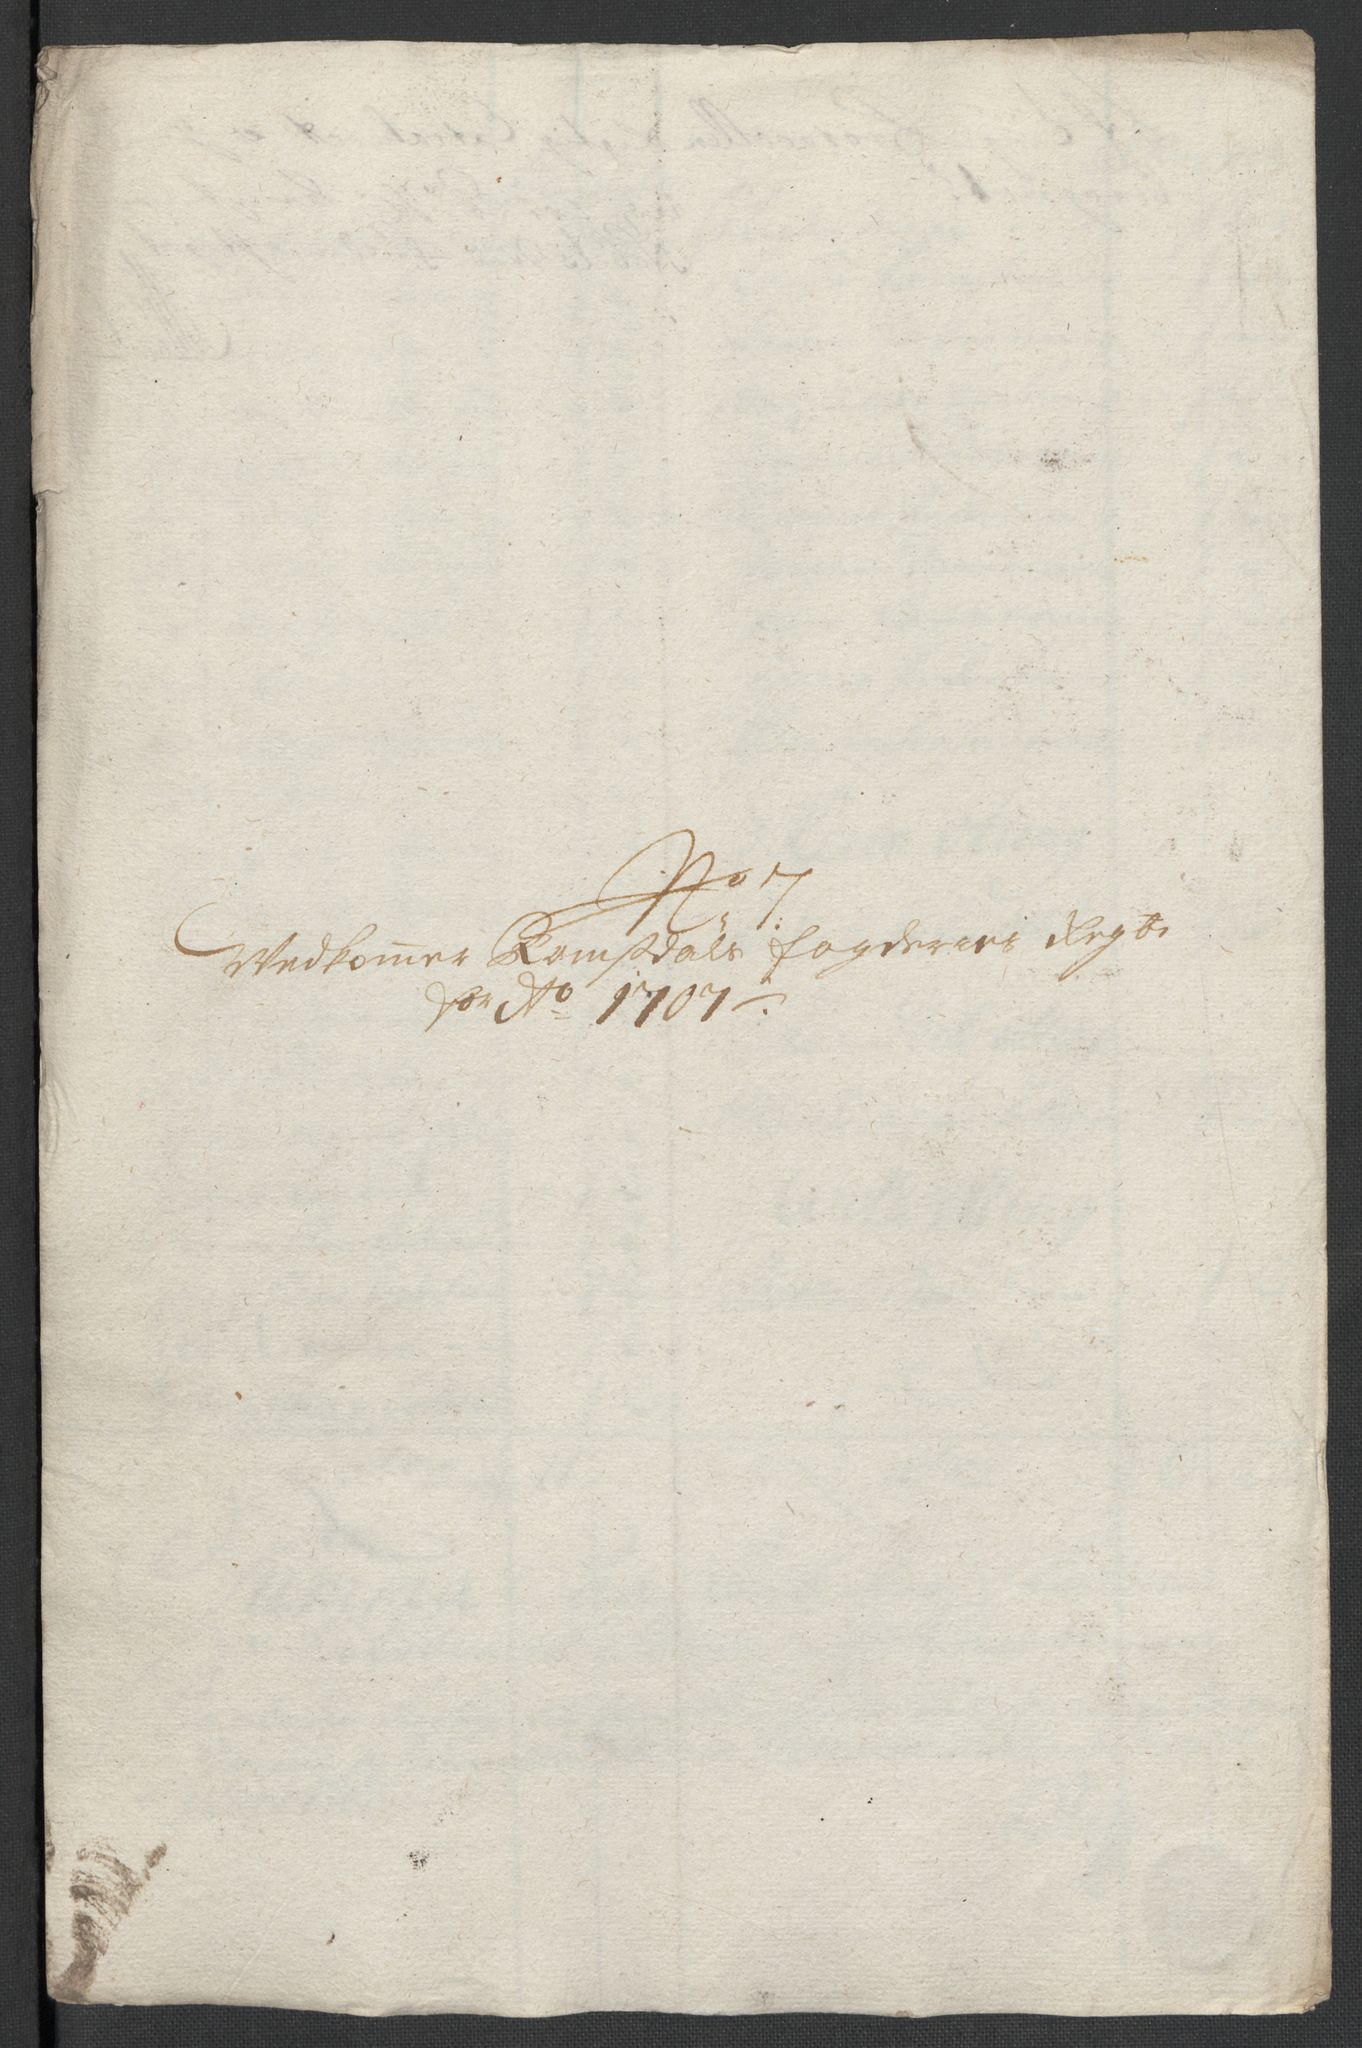 No 7.
Vedkom̄er Romsdals fogderies Regb:
for Ao 1707